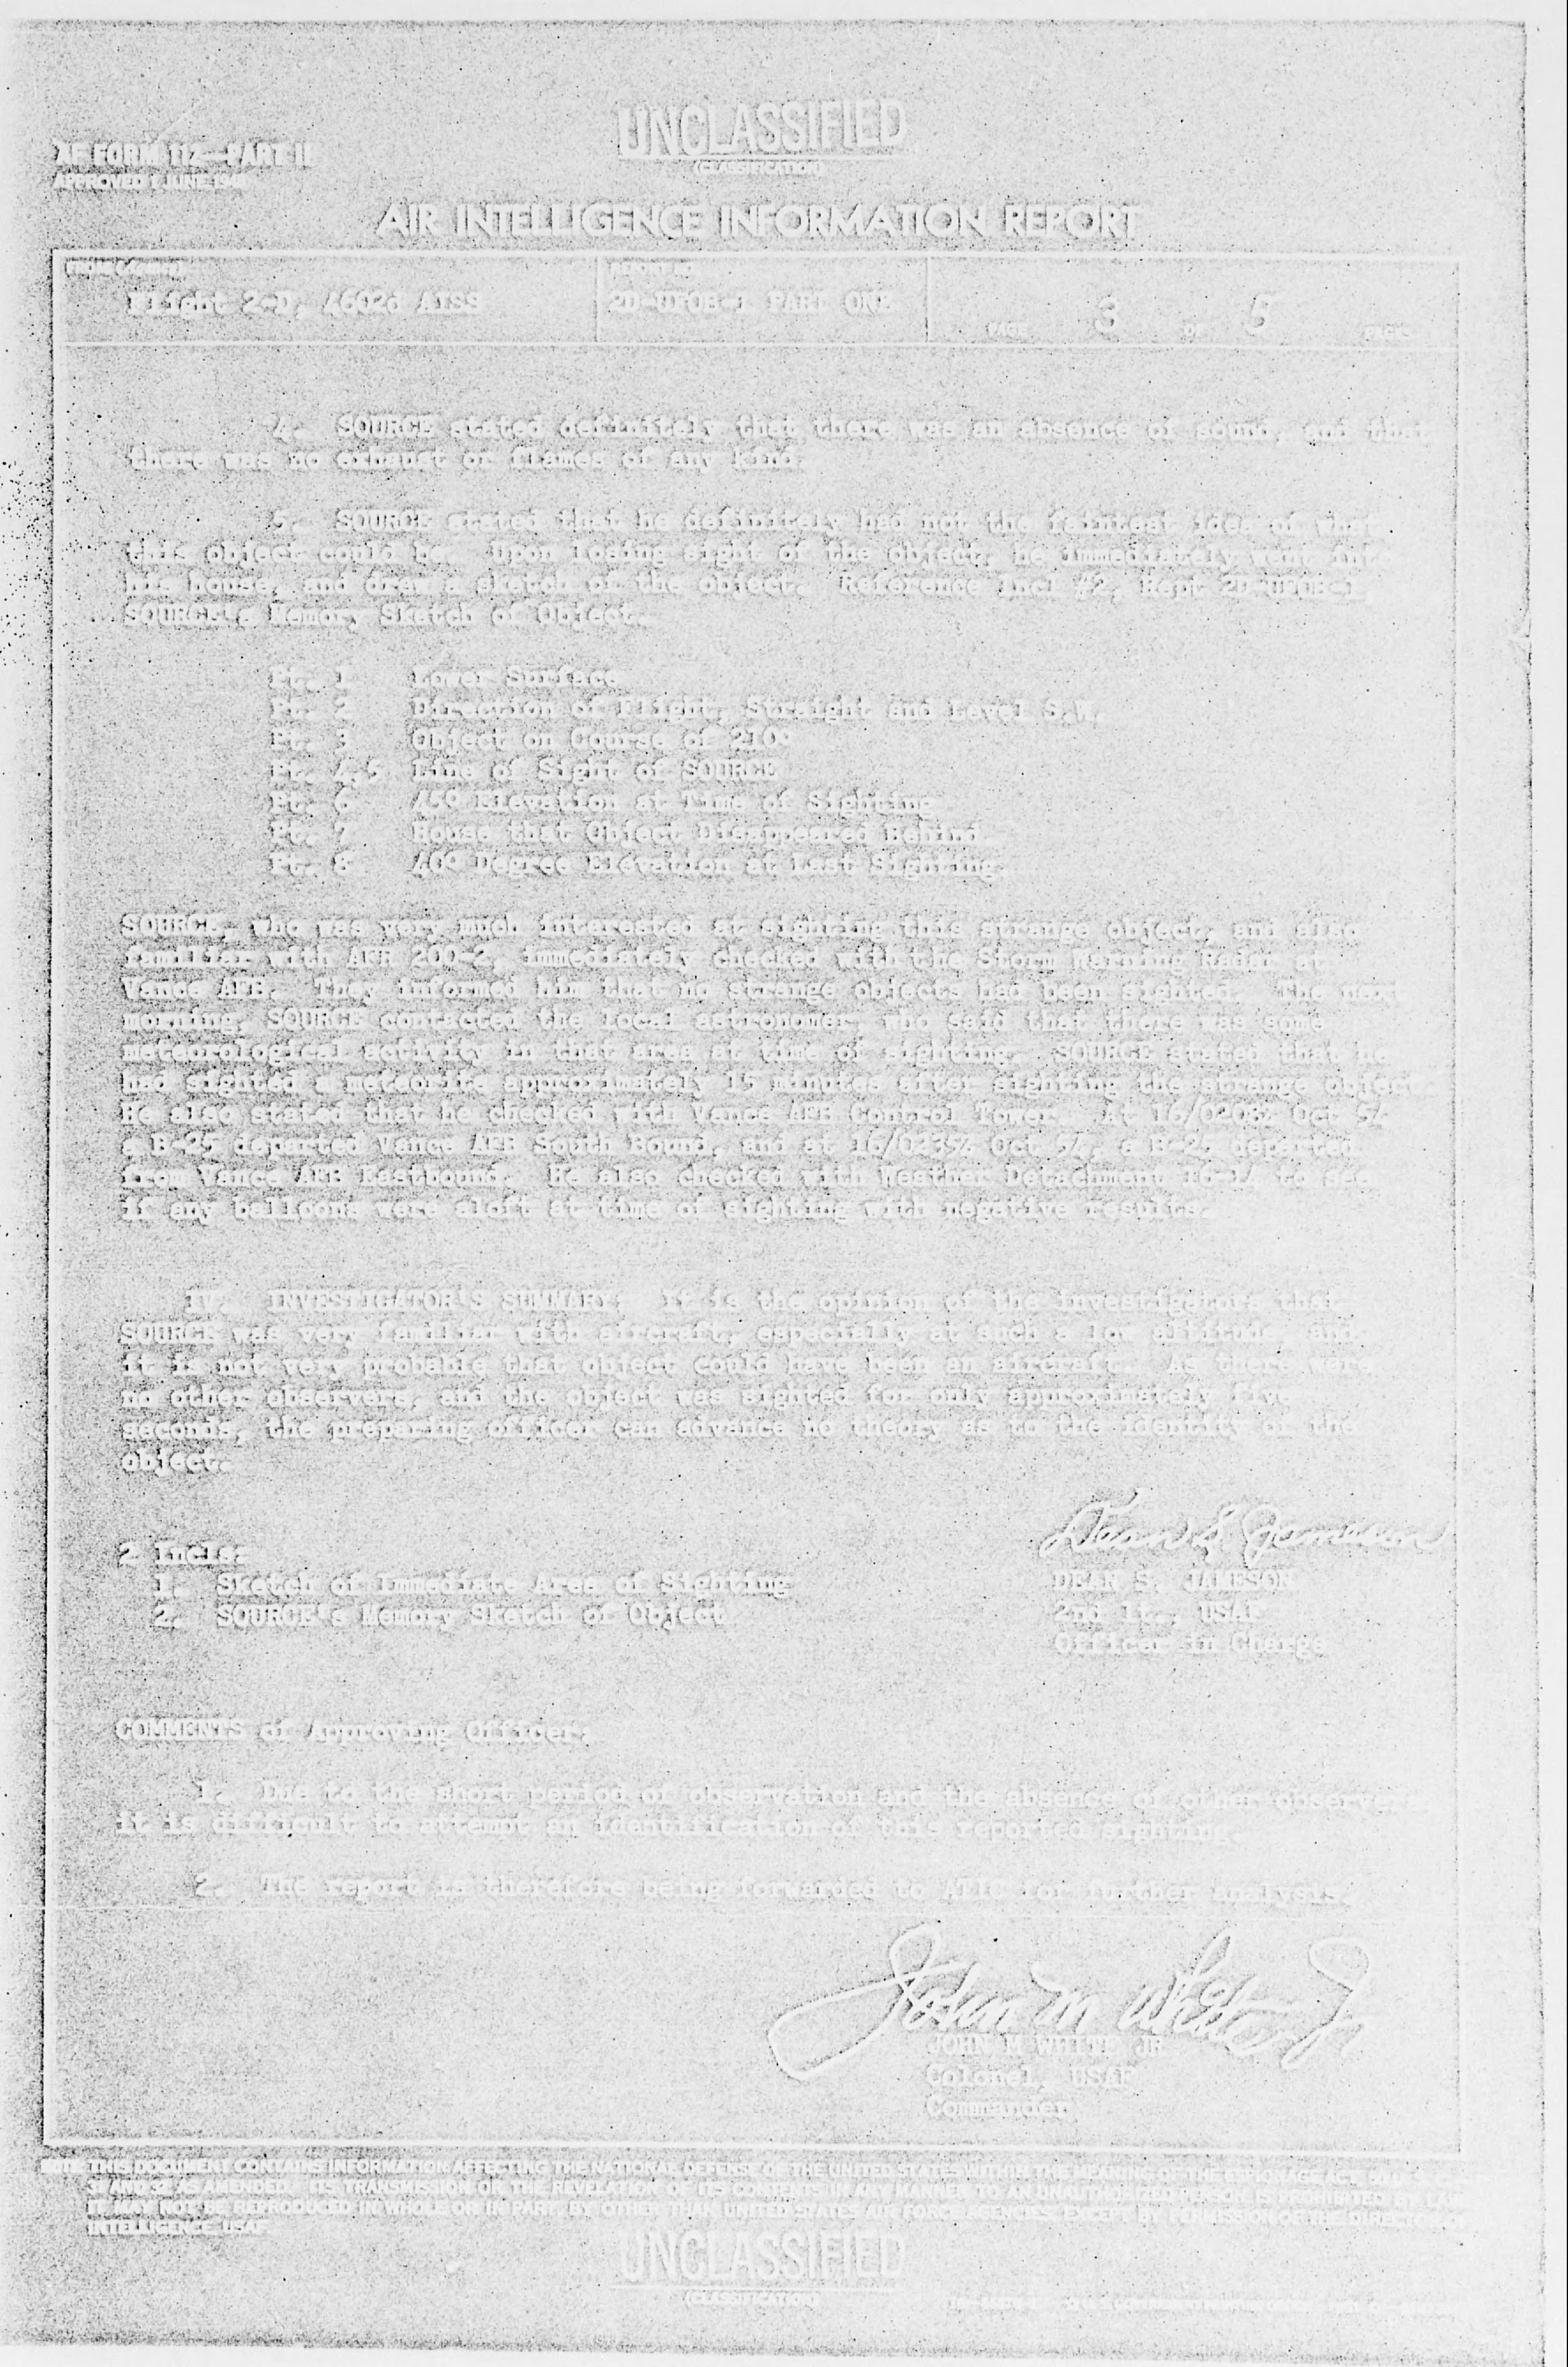 UNCLASSIFIED
(CLASSIFICATION)
AF FORM 112—PART II
APPROVED 1 JUNE
AIR INTELLIGENCE INFORMATION REPORT
Flight 2-D, 4602d AISS
2D-UFOB-1 PART ONE
PAGE 3 OF 5 PAGES
4. SOURCE stated definitely that there was an absence of sound, and that
there was no exhaust or flames of any kind.
5. SOURCE stated that he definitely had not the faintest idea of what
this object could be. Upon losing sight of the object, he immediately went into
his house, and drew a sketch of the object. Reference Incl #2, Rept 2D-UFOB-1,
SOURCE's Memory Sketch of Object.
Pt. 1 Lower Surface
Pt. 2 Direction of Flight, Straight and Level S.W.
Pt. 3 Object on Course of 210°
Pt. 4,5 Line of Sight of SOURCE
Pt. 6 45° Elevation at Time of Sighting
Pt. 7 House that Object Disappeared Behind
Pt. 8 40° Degree Elevation at Last Sighting.
SOURCE, who was very much interested at sighting this strange object, and also
familiar with AFR 200-2, immediately checked with the Storm Warning Radar at
Vance AFB. They informed him that no strange objects had been sighted. The next
morning, SOURCE contacted the local astronomer, who said that there was some
meteorological activity in that area at time of sighting. SOURCE stated that he
had sighted a meteorite approximately 15 minutes after sighting the strange object.
He also stated that he checked with Vance AFB Control Tower. At 16/0208Z Oct 54
a B-25 departed Vance AFB South Bound, and at 16/0235Z Oct 54, a B-25 departed
from Vance AFB Eastbound. He also checked with Weather Detachment 16-14 to see
if any balloons were aloft at time of sighting with negative results.
IV. INVESTIGATOR'S SUMMARY: It is the opinion of the investigators that
SOURCE was very familiar with aircraft, especially at such a low altitude, and
it is not very probable that object could have been an aircraft. As there were
no other observers, and the object was sighted for only approximately five
seconds, the preparing officer can advance no theory as to the identity of the
object.
2 Incls:
1. Sketch of Immediate Area of Sighting
2. SOURCE's Memory Sketch of Object
Dean S. Jameson
DEAN S. JAMESON
2nd Lt., USAF
Officer in Charge
COMMENTS of Approving Officer:
1. Due to the short period of observation and the absence of other observers
it is difficult to attempt an identification of this reported sighting.
2. The report is therefore being forwarded to ATIC for further analysis.
John M White Jr
JOHN M WHITE JR
Colonel, USAF
Commander
NOTE: THIS DOCUMENT CONTAINS INFORMATION AFFECTING THE NATIONAL DEFENSE OF THE UNITED STATES WITHIN THE MEANING OF THE ESPIONAGE ACT, 50 U.S.C.
31 AND 32, AS AMENDED. ITS TRANSMISSION OR THE REVELATION OF ITS CONTENTS IN ANY MANNER TO AN UNAUTHORIZED PERSON IS PROHIBITED BY LAW.
IT MAY NOT BE REPRODUCED IN WHOLE OR IN PART, BY OTHER THAN UNITED STATES AIR FORCE AGENCIES, EXCEPT BY PERMISSION OF THE DIRECTOR OF
INTELLIGENCE, USAF.
UNCLASSIFIED
(CLASSIFICATION)